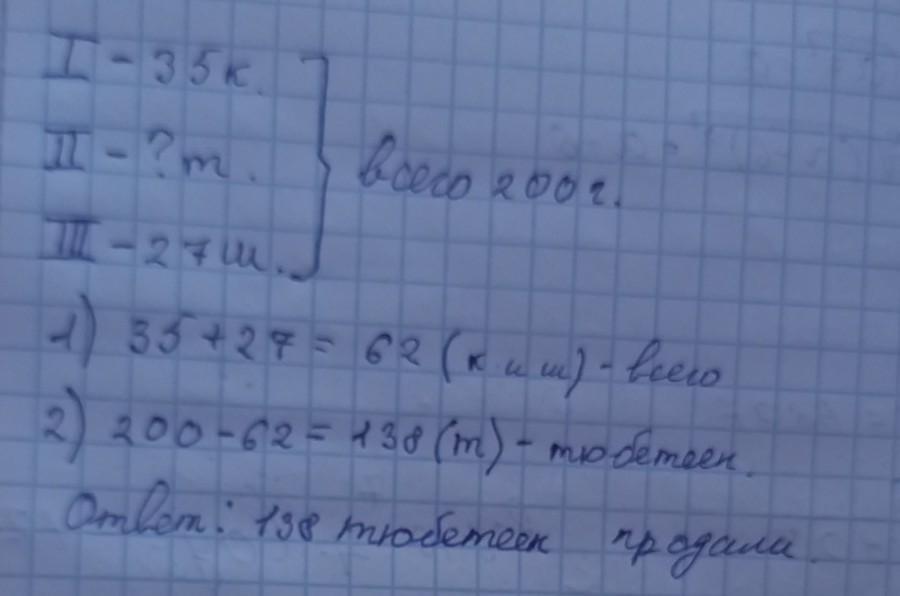 I - 35 к.
II - ? т.
III - 27 ш.
всего 200 г.
1) 35 + 27 = 62 (к и ш) - всего
2) 200 - 62 = 138 (т) - тюбетеек.
Ответ: 138 тюбетеек продали.